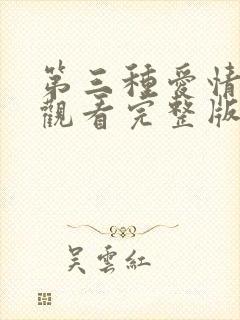 第三種愛情
觀看完整版
吳雲紅